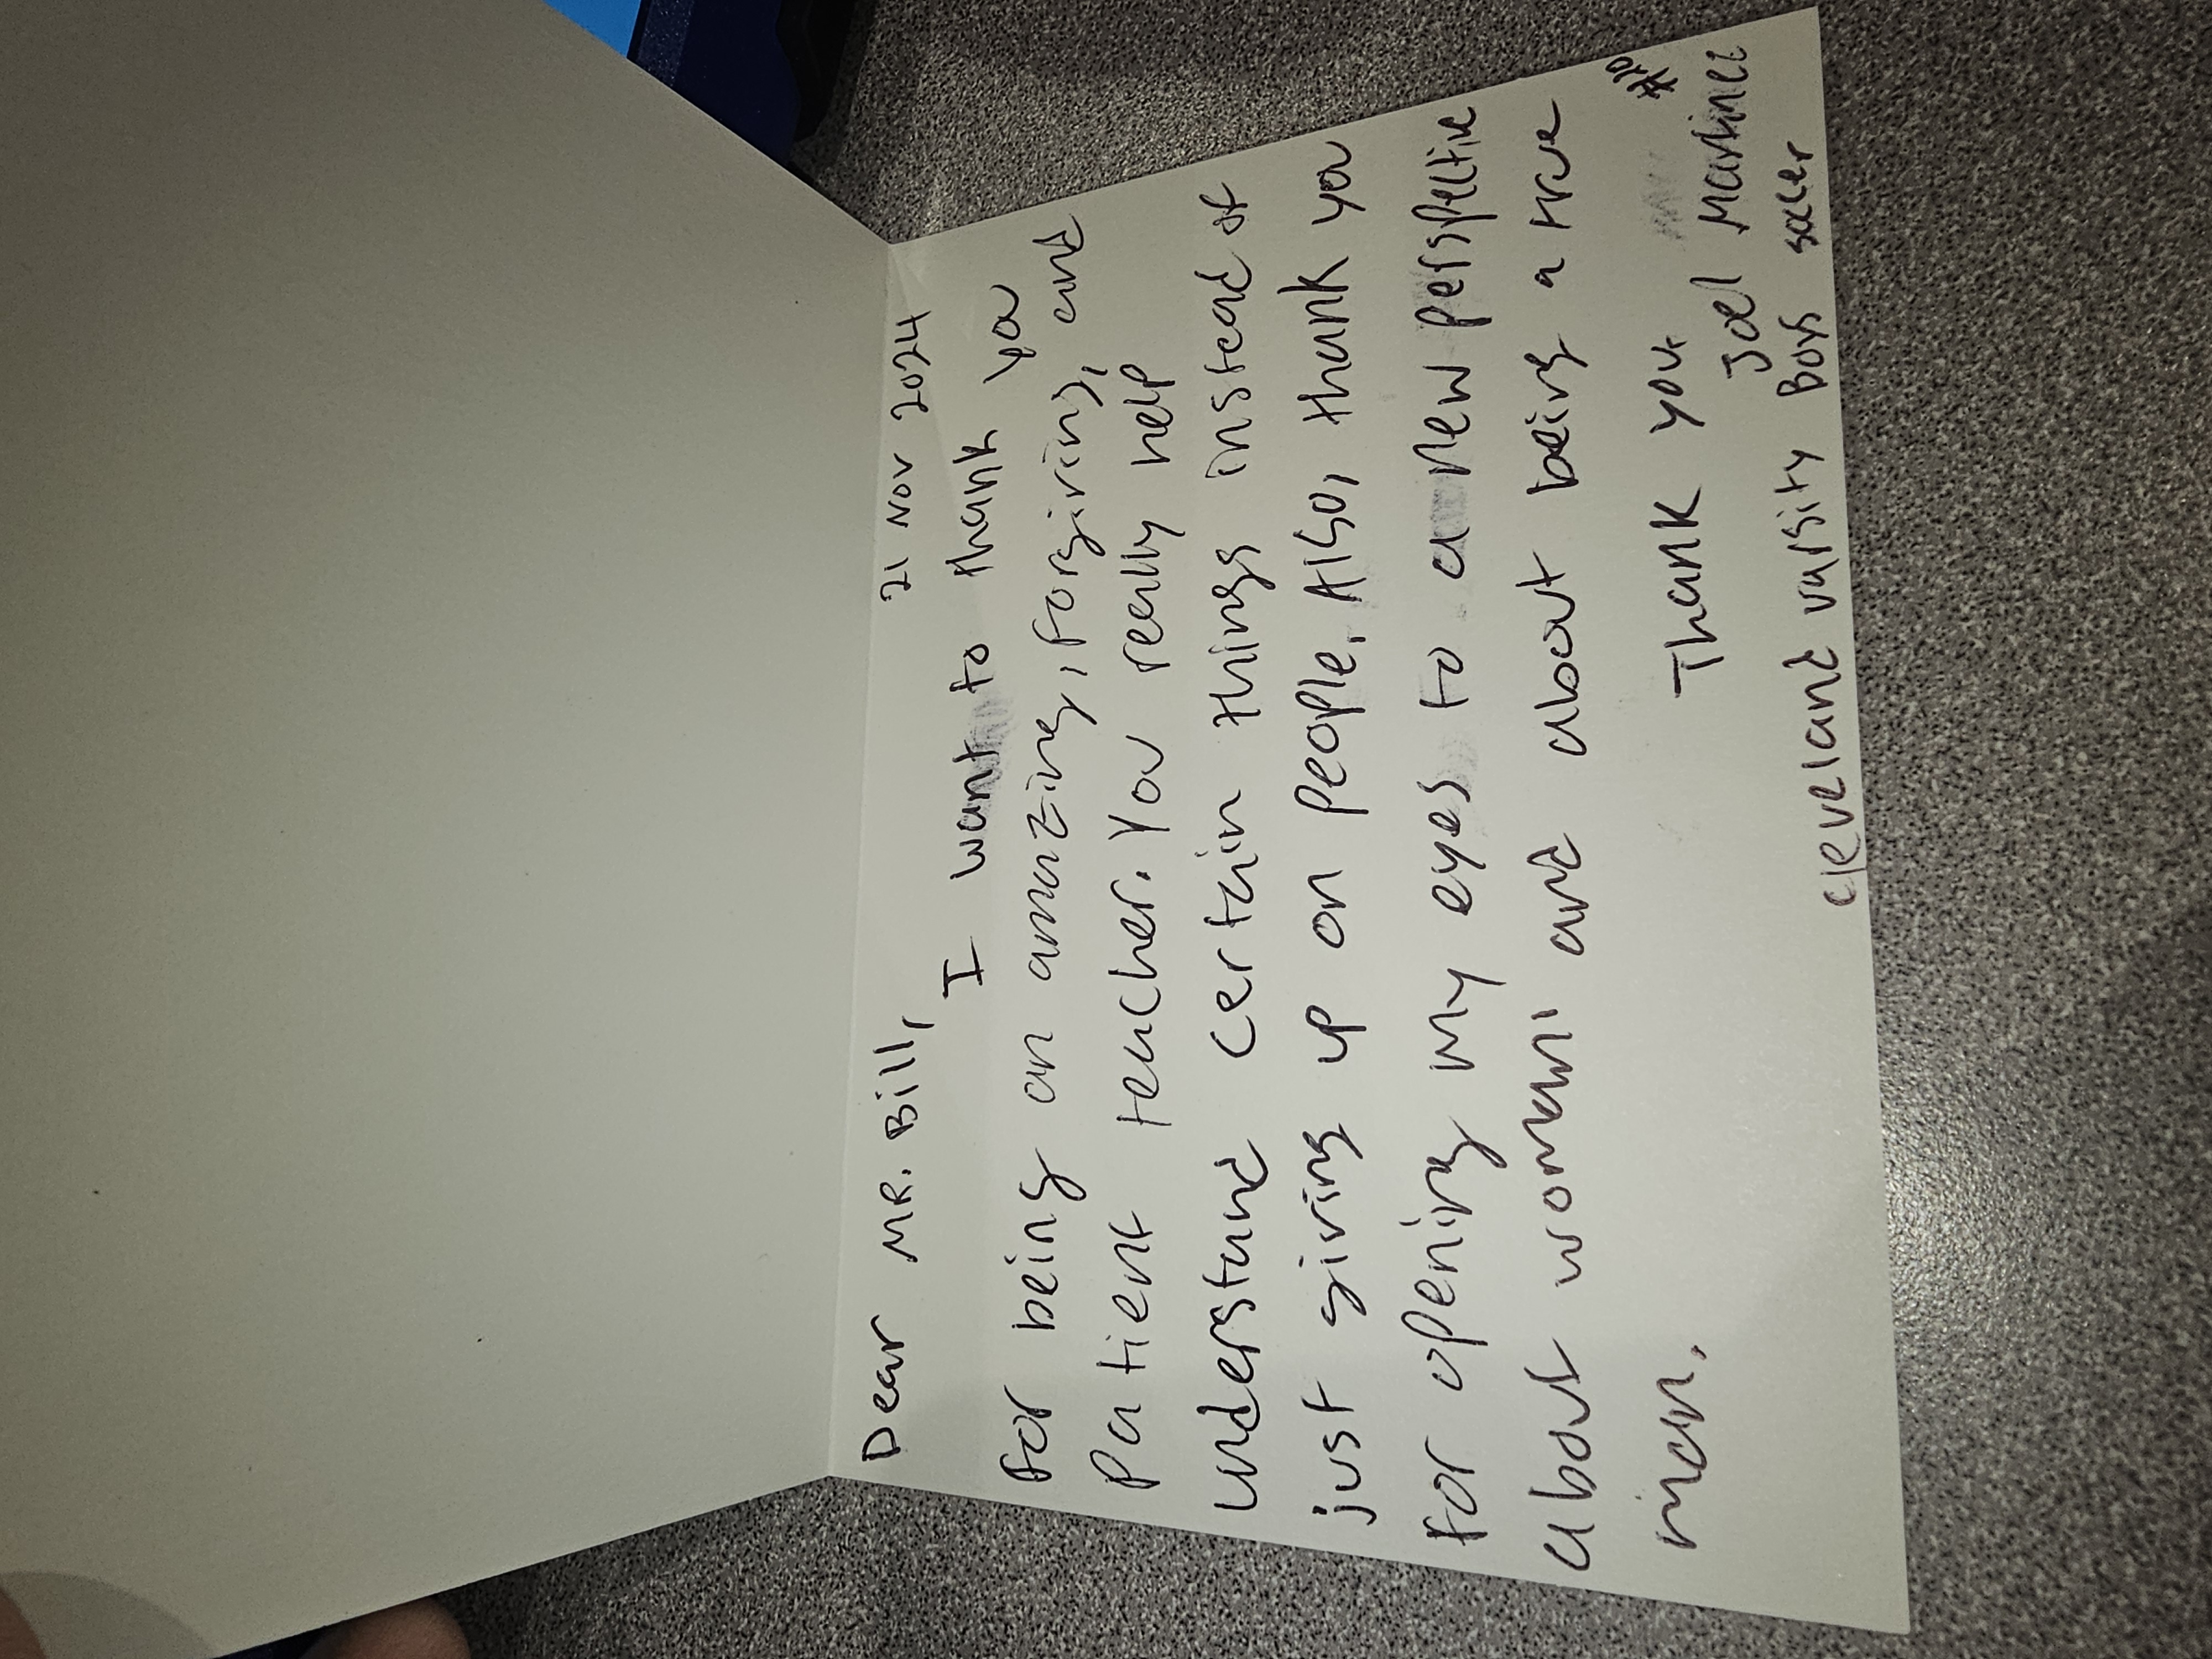 21 Nov 2024
Dear MR. Bill,
I want to thank you
for being an amazing, forgiving, and
Patient teacher. You really help
understand certain things instead of
just giving up on people. Also, thank you
for opening my eyes to a new perspective
about woman and about being a true
man.
Thank you
#10
Joel Martinez
cleveland varsity Boys soccer